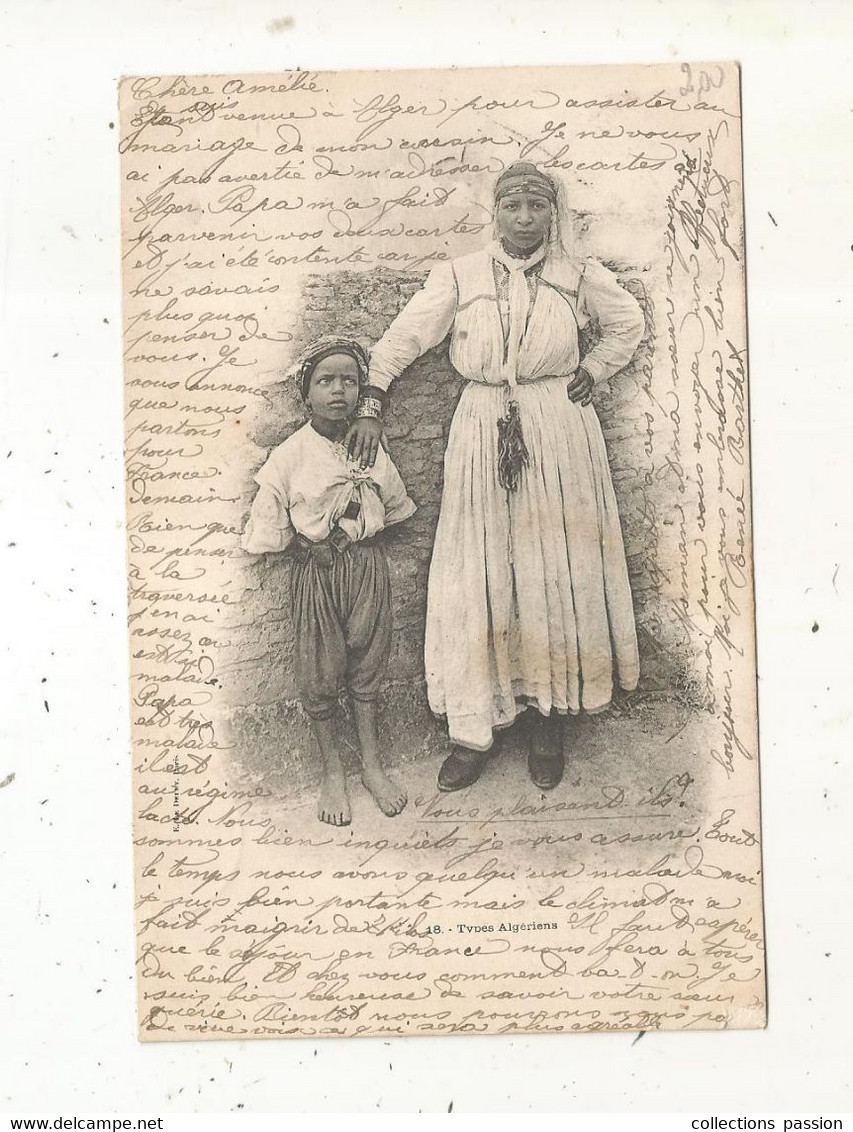 200
Chère Amélie.
Etant venue à Alger pour assister au
suis
mariage de mon cousin. Je ne vous
ai pas avertie de m'adresser les cartes à
Alger. Papa m'a fait
parvenir vos deux cartes
et j'ai été contente car je
ne savais
plus quoi
penser de
vous. Je
vous annonce
que nous
partons
pour
France
demain
Rien que
de penser
à la
traversée
j'en ai
assez
est
malade.
Papa
est très
malade
il est
au régime
lacté. Nous
Vous plaisent-ils?
sommes bien inquiets je vous assure. Tout
le temps nous avons quelqu'un malade moi
je suis bien portante mais le climat m'a
fait maigrir de
18. - Types Algériens
Il faut espérer
que le séjour en France nous fera à tous
du bien. Et chez vous comment va-t-on. Je
suis bien heureuse de savoir votre sœur
guérie. Bientôt nous pourrons nous
de vive voix ce qui sera plus agréable
à vos parents
Maman et ma sœur se joignent
à moi pour vous envoyer un
bonjour. Moi je vous embrasse bien fort
Renée